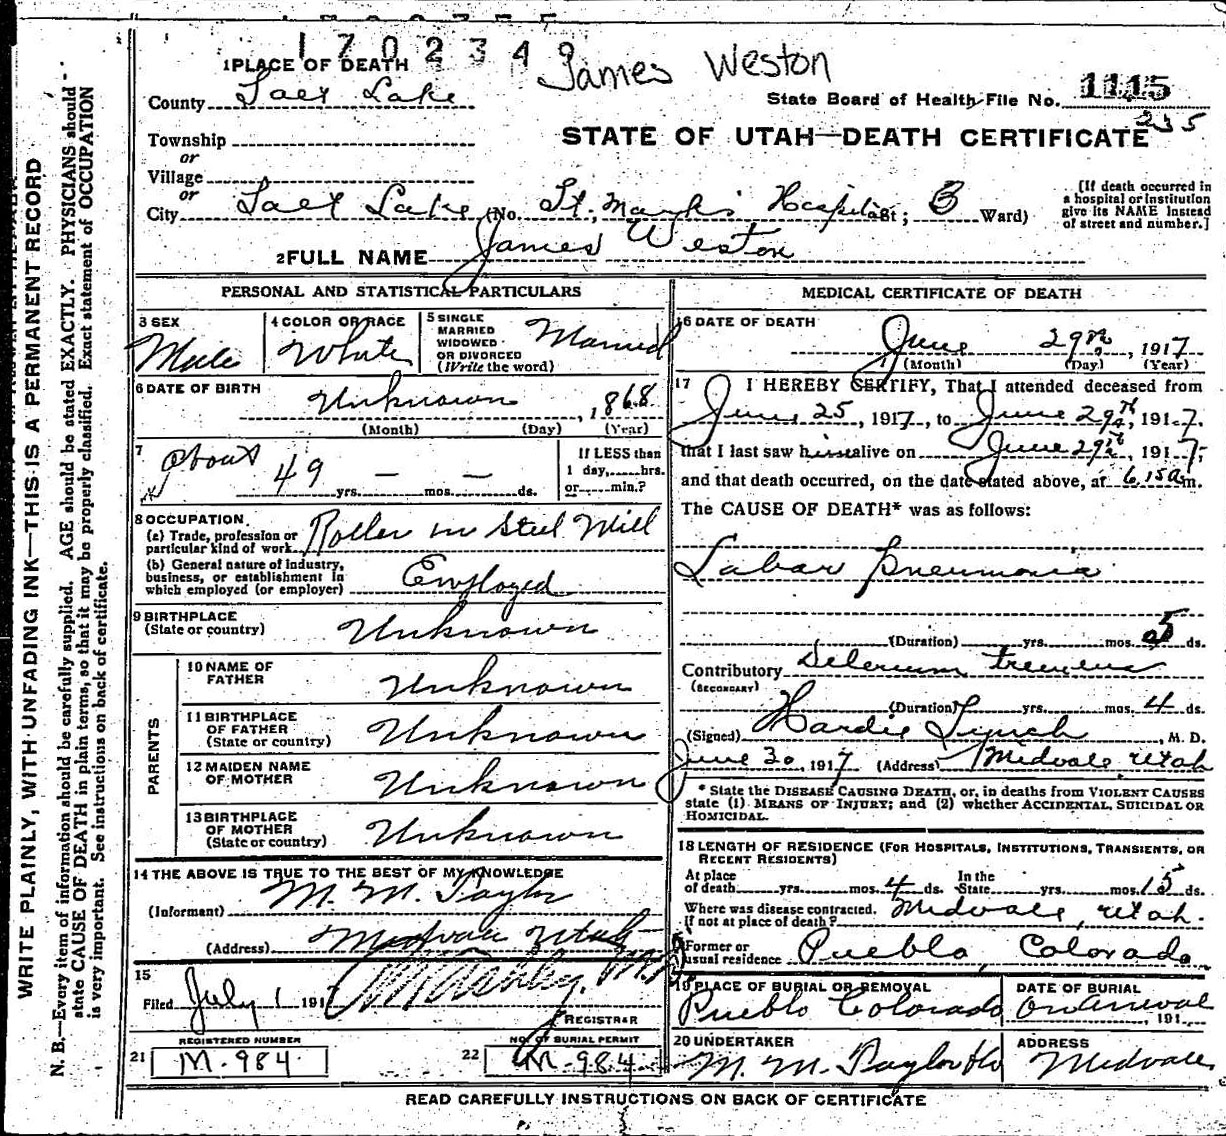 1702349
James Weston
1 PLACE OF DEATH
County Salt Lake
State Board of Health File No. 1115
235
STATE OF UTAH—DEATH CERTIFICATE
Township
or
Village
or
City Salt Lake (No. St. Mark's Hospital St; 3 Ward)
[If death occurred in
a hospital or institution
give its NAME instead
of street and number.]
2 FULL NAME James Weston
PERSONAL AND STATISTICAL PARTICULARS
3 SEX
Male
4 COLOR OR RACE
White
5 SINGLE
MARRIED
WIDOWED
OR DIVORCED
(Write the word)
Married
6 DATE OF BIRTH
Unknown, 1868
(Month) (Day) (Year)
7
about 49 yrs. — mos. — ds.
If LESS than
1 day,......hrs.
or......min.?
8 OCCUPATION
(a) Trade, profession or
particular kind of work Roller in Steel Mill
(b) General nature of industry,
business, or establishment in
which employed (or employer) Employed
9 BIRTHPLACE
(State or country) Unknown
PARENTS
10 NAME OF
FATHER Unknown
11 BIRTHPLACE
OF FATHER
(State or country) Unknown
12 MAIDEN NAME
OF MOTHER Unknown
13 BIRTHPLACE
OF MOTHER
(State or country) Unknown
14 THE ABOVE IS TRUE TO THE BEST OF MY KNOWLEDGE
(Informant) M. M. Taylor
(Address) Midvale Utah
15
Filed July 1 191
REGISTRAR
REGISTERED NUMBER
21 M-984
NO. OF BURIAL PERMIT
22 M-984
MEDICAL CERTIFICATE OF DEATH
16 DATE OF DEATH
June 29th, 1917
(Month) (Day) (Year)
17 I HEREBY CERTIFY, That I attended deceased from
June 25, 1917, to June 29th, 1917.
that I last saw him alive on June 29th, 1917,
and that death occurred, on the date stated above, at 6.15 a m.
The CAUSE OF DEATH* was as follows:
Labar Pneumonia
(Duration) yrs. mos. 5 ds.
Contributory Delerium tremens
(SECONDARY)
(Duration) yrs. mos. 4 ds.
(Signed) Hardie Lynch, M. D.
June 30, 1917 (Address) Midvale, Utah
* State the DISEASE CAUSING DEATH, or, in deaths from VIOLENT CAUSES
state (1) MEANS OF INJURY; and (2) whether ACCIDENTAL, SUICIDAL OR
HOMICIDAL.
18 LENGTH OF RESIDENCE (FOR HOSPITALS, INSTITUTIONS, TRANSIENTS, OR
RECENT RESIDENTS)
At place
of death yrs. mos. 4 ds. In the
State yrs. mos. 15 ds.
Where was disease contracted,
If not at place of death? Midvale, Utah.
Former or
usual residence Pueblo, Colorado
19 PLACE OF BURIAL OR REMOVAL
Pueblo Colorado
DATE OF BURIAL
On Arrival, 191
20 UNDERTAKER
M. M. Taylor
ADDRESS
Midvale
READ CAREFULLY INSTRUCTIONS ON BACK OF CERTIFICATE
WRITE PLAINLY, WITH UNFADING INK—THIS IS A PERMANENT RECORD
N. B.—Every item of information should be carefully supplied. AGE should be stated EXACTLY. PHYSICIANS should
state CAUSE OF DEATH in plain terms, so that it may be properly classified. Exact statement of OCCUPATION
is very important. See instructions on back of certificate.